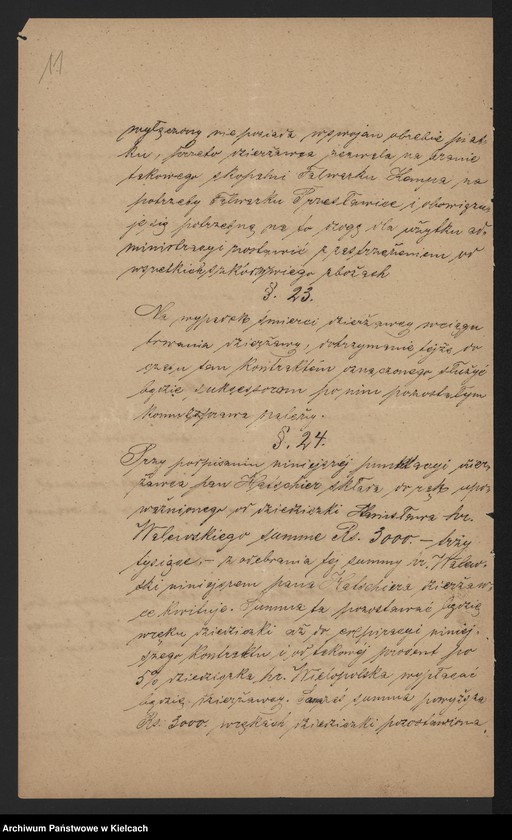 11
wyłączony nie posiada w swojem obrębie piasku, przeto dzierżawca zezwala na branie
takowego z kopalni Folwarku Kempa na
potrzeby Folwarku Przesławice i obowiązuje się potrzebną na to drogę dla użytku administracyi zostawić z zastrzeżeniem od
wszelkich szkód w jego zbożach
§. 23.
Na wypadek śmierci dzierżawcy w ciągu
trwania dzierżawy, dotrzymanie tejże do
czasu tem Kontraktem oznaczonego służyć
będzie sukcessorom po nim pozostałym
komu z prawa należy.
§. 24.
Przy podpisaniu niniejszej punktacyi dzierżawca pan Hatschier składa do rąk upoważnionego od dziedziczki Stanisława hr.
Walewskiego summe Rs. 3000.– trzy
tysiące, – z odebrania tej summy hr. Walewski niniejszem pana Hatschiera dzierżawcę kwituje. Summa ta pozostawać będzie
w ręku dziedziczki aż do expiracyi niniejszego kontraktu i od takowej procent po
5% dziedziczka hr. Wielopolska wypłacać
będzie dzierżawcy. Taż summa powyższa
Rs. 3000. w rękach dziedziczki pozostawiona
Archiwum Państwowe w Kielcach